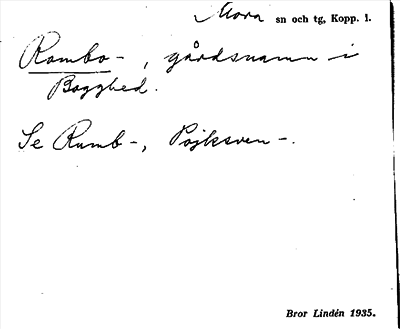 Mora sn och tg, Kopp. 1.
Rombo-, gårdsnamn i
Bogghed.
Se Rumb-, Pojksven-.
Bror Lindén 1935.